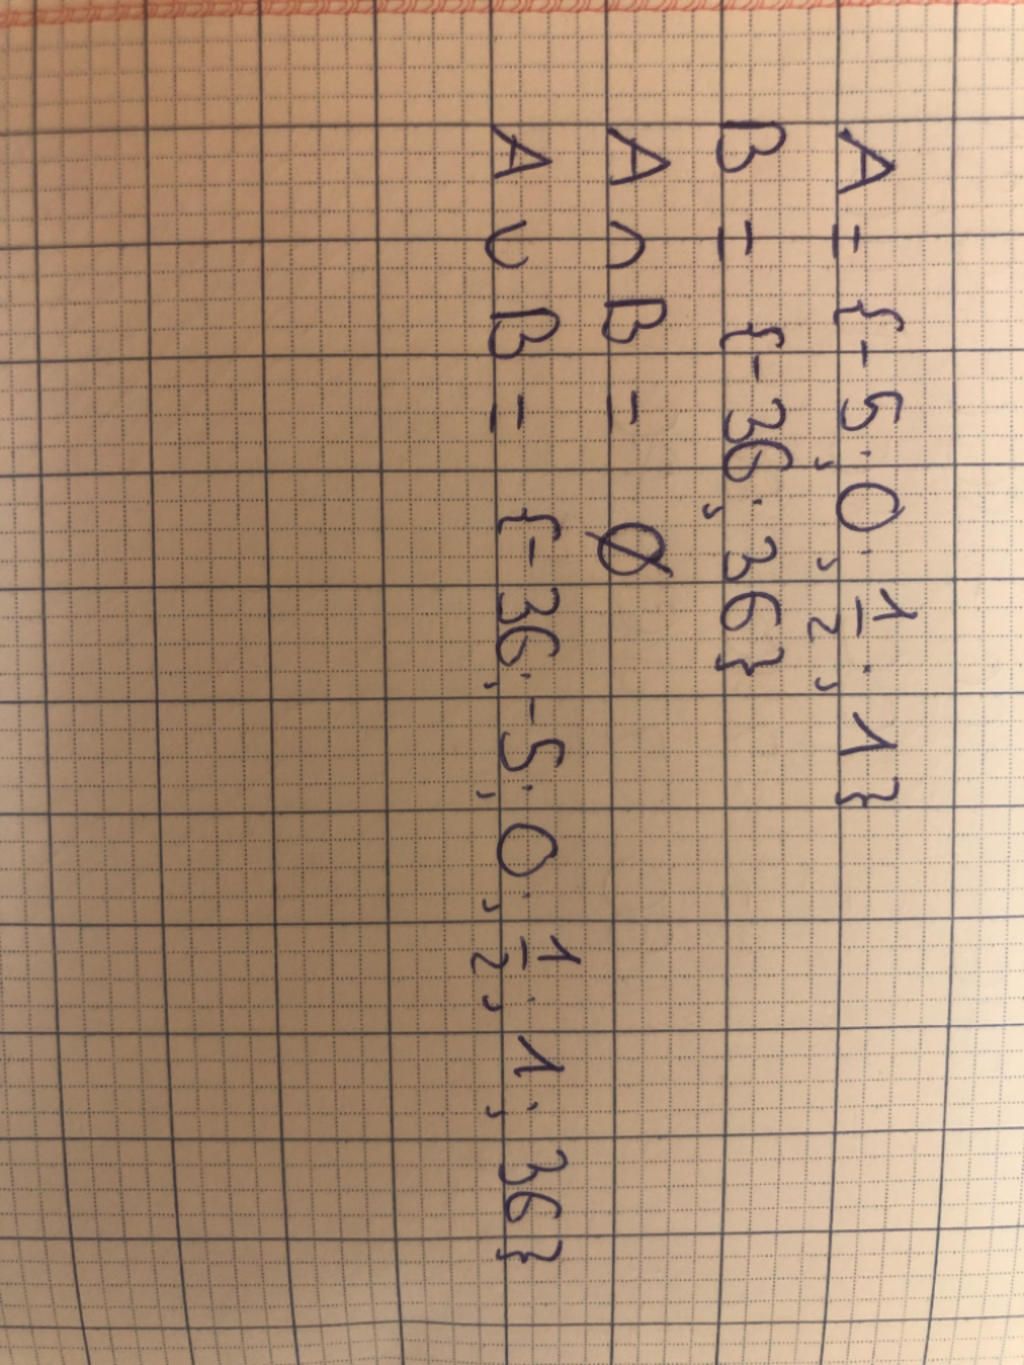 A = {-5; 0; 1/2; 1}
B = {-36; 36}
A ∩ B = Ø
A ∪ B = {-36; -5; 0; 1/2; 1; 36}